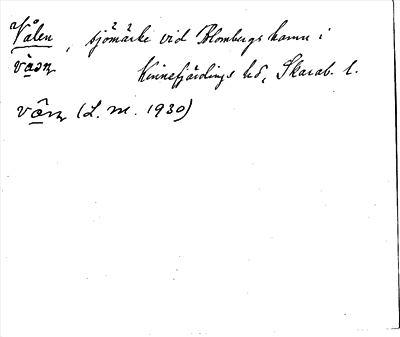 Vålen, sjömärke vid Blombergs hamn i
Kinnefjärdings hd, Skarab. l.
(L. M. 1930)